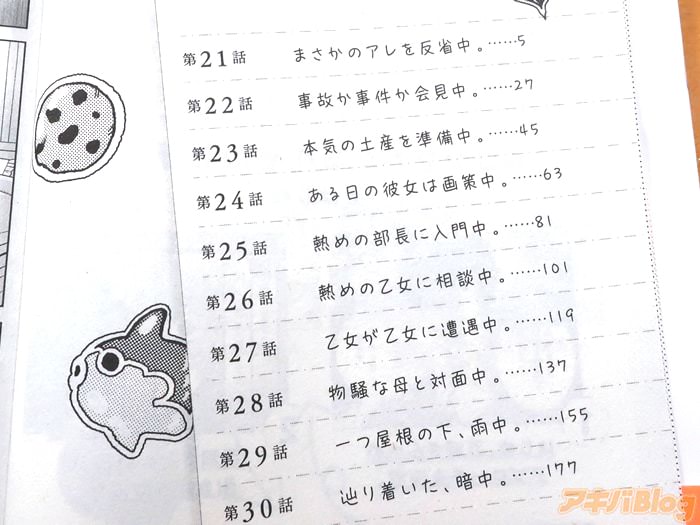 第21話 まさかのアレを反省中。……5
第22話 事故か事件か会見中。……27
第23話 本気の土産を準備中。……45
第24話 ある日の彼女は画策中。……63
第25話 熱めの部長に入門中。……81
第26話 熱めの乙女に相談中。……101
第27話 乙女が乙女に遭遇中。……119
第28話 物騒な母と対面中。……137
第29話 一つ屋根の下、雨中。……155
第30話 辿り着いた、暗中。……177
アキバBlog